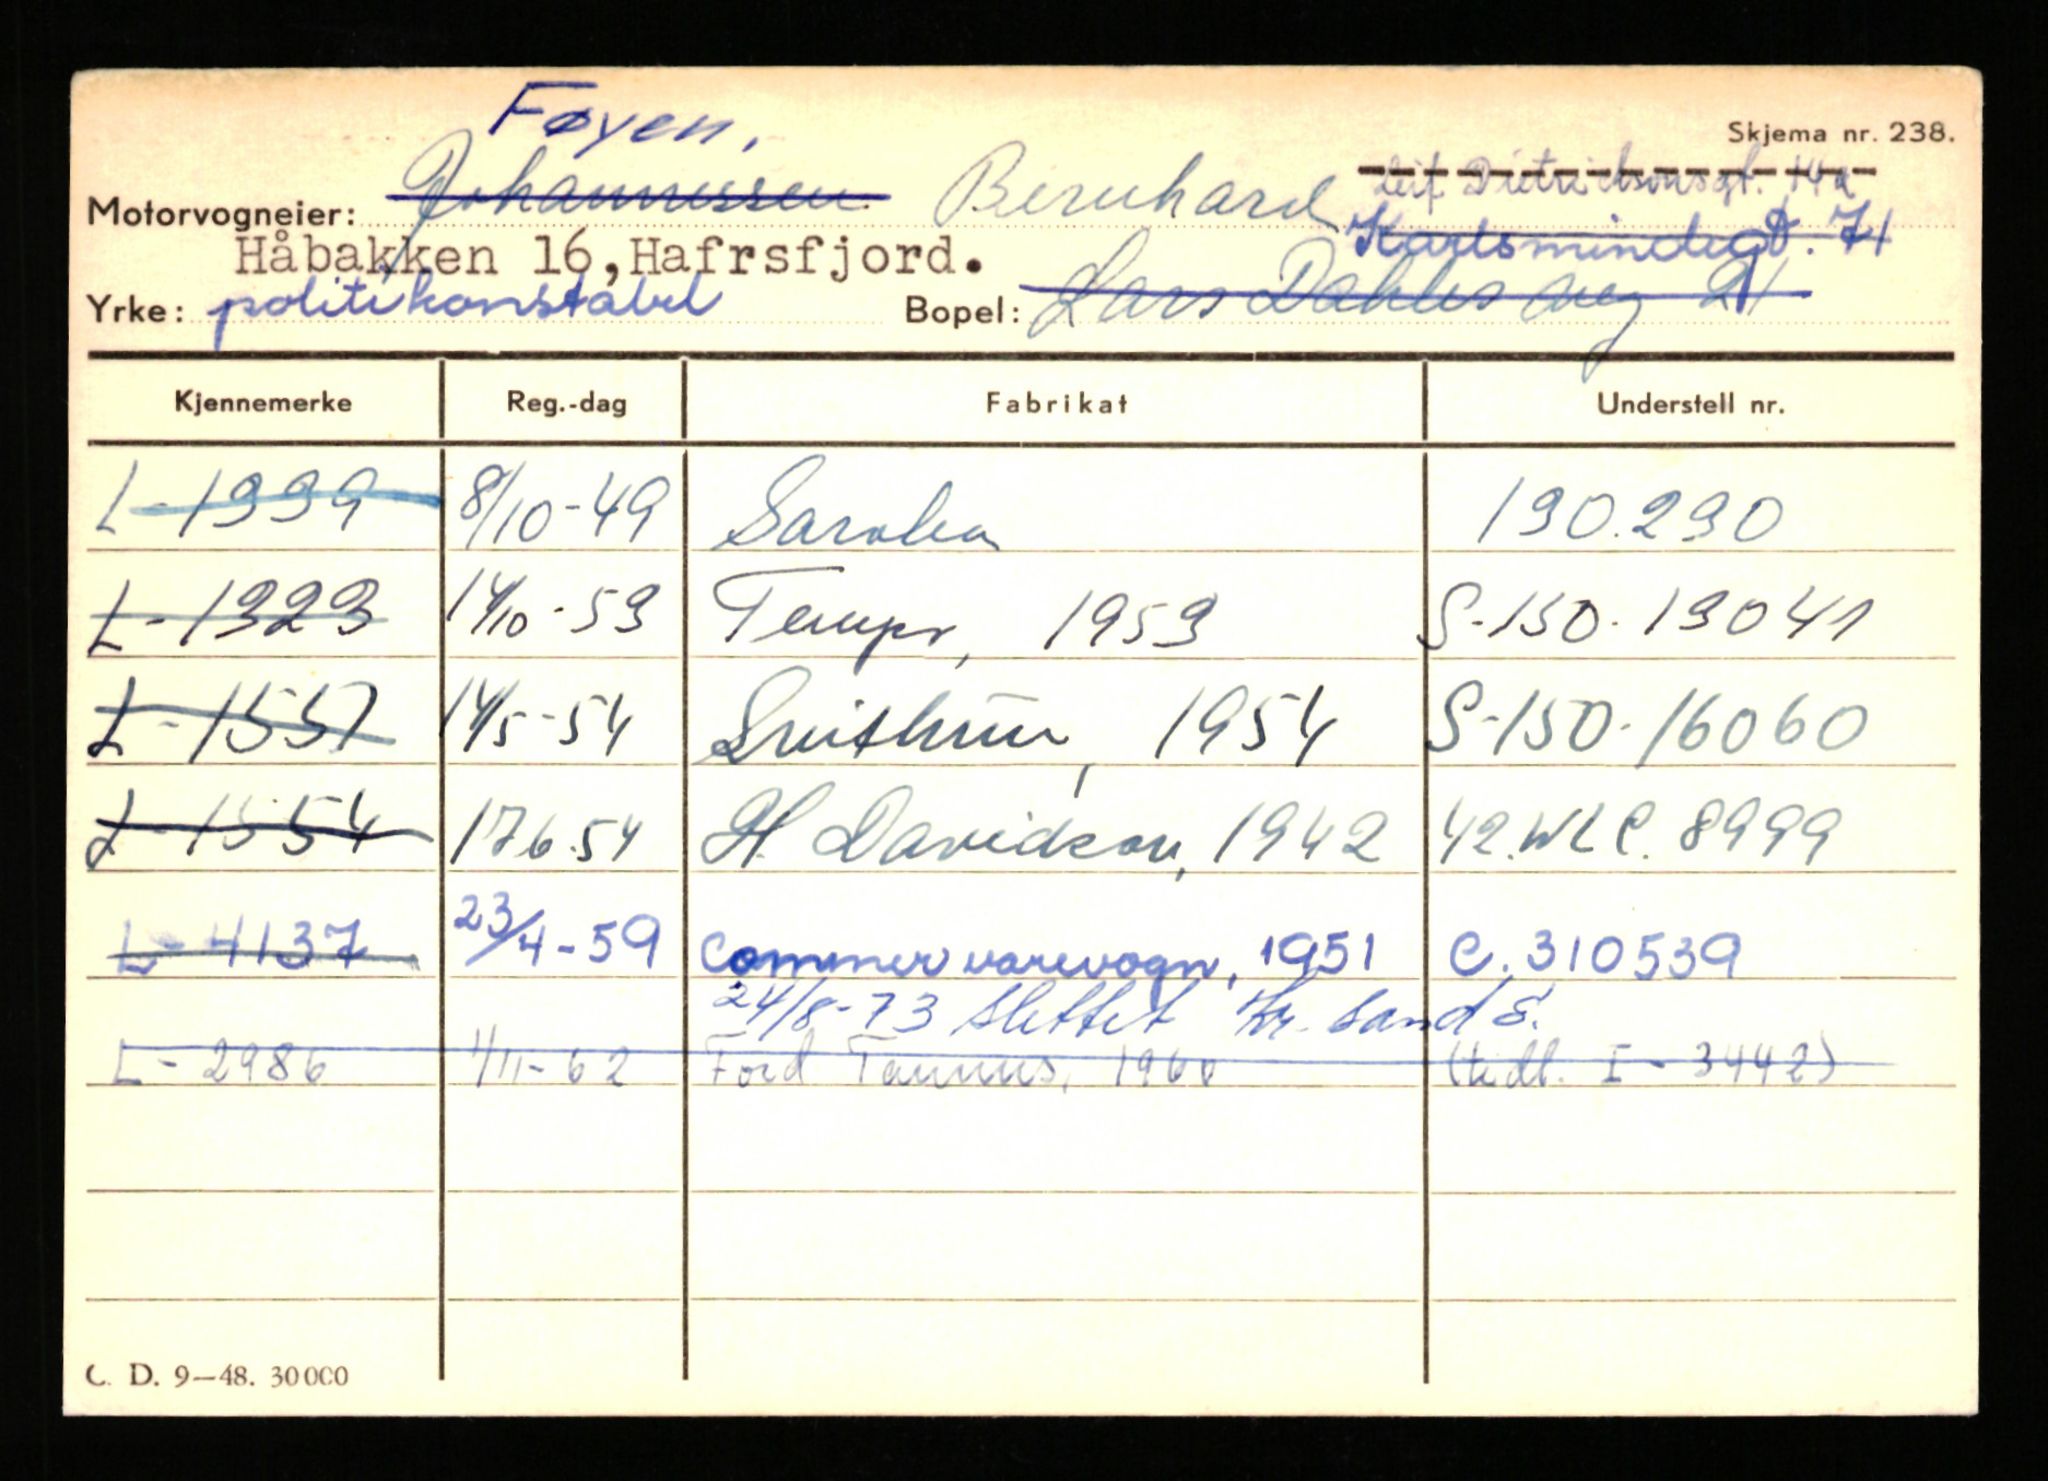 Føyen,
Skjema nr. 238.
Leif Dietrichsonsgt. 14a
Motorvogneier: Johannessen Bernhard
Karlsmindegt. 71
Håbakken 16, Hafrsfjord.
Yrke: politikonstabel Bopel: Lars Dahles veg 21
Kjennemerke Reg.-dag Fabrikat Understell nr.
L-1999 8/10-49 Sarolea 190.290
L-1323 14/10-53 Tempo, 1953 S-150-13041
L-1557 14/5-54 Svithun, 1954 S-150-16060
L-1554 17.6.54 H. Davidson, 1942 42.WLC.8999
L-4137 23/4-59 Commer varevogn, 1951 C.310539
24/8-73 slettet Kr.sand S.
L-2986 1/11-62 Ford Taunus, 1960 (tidl. I-3442)
C. D. 9—48. 30000